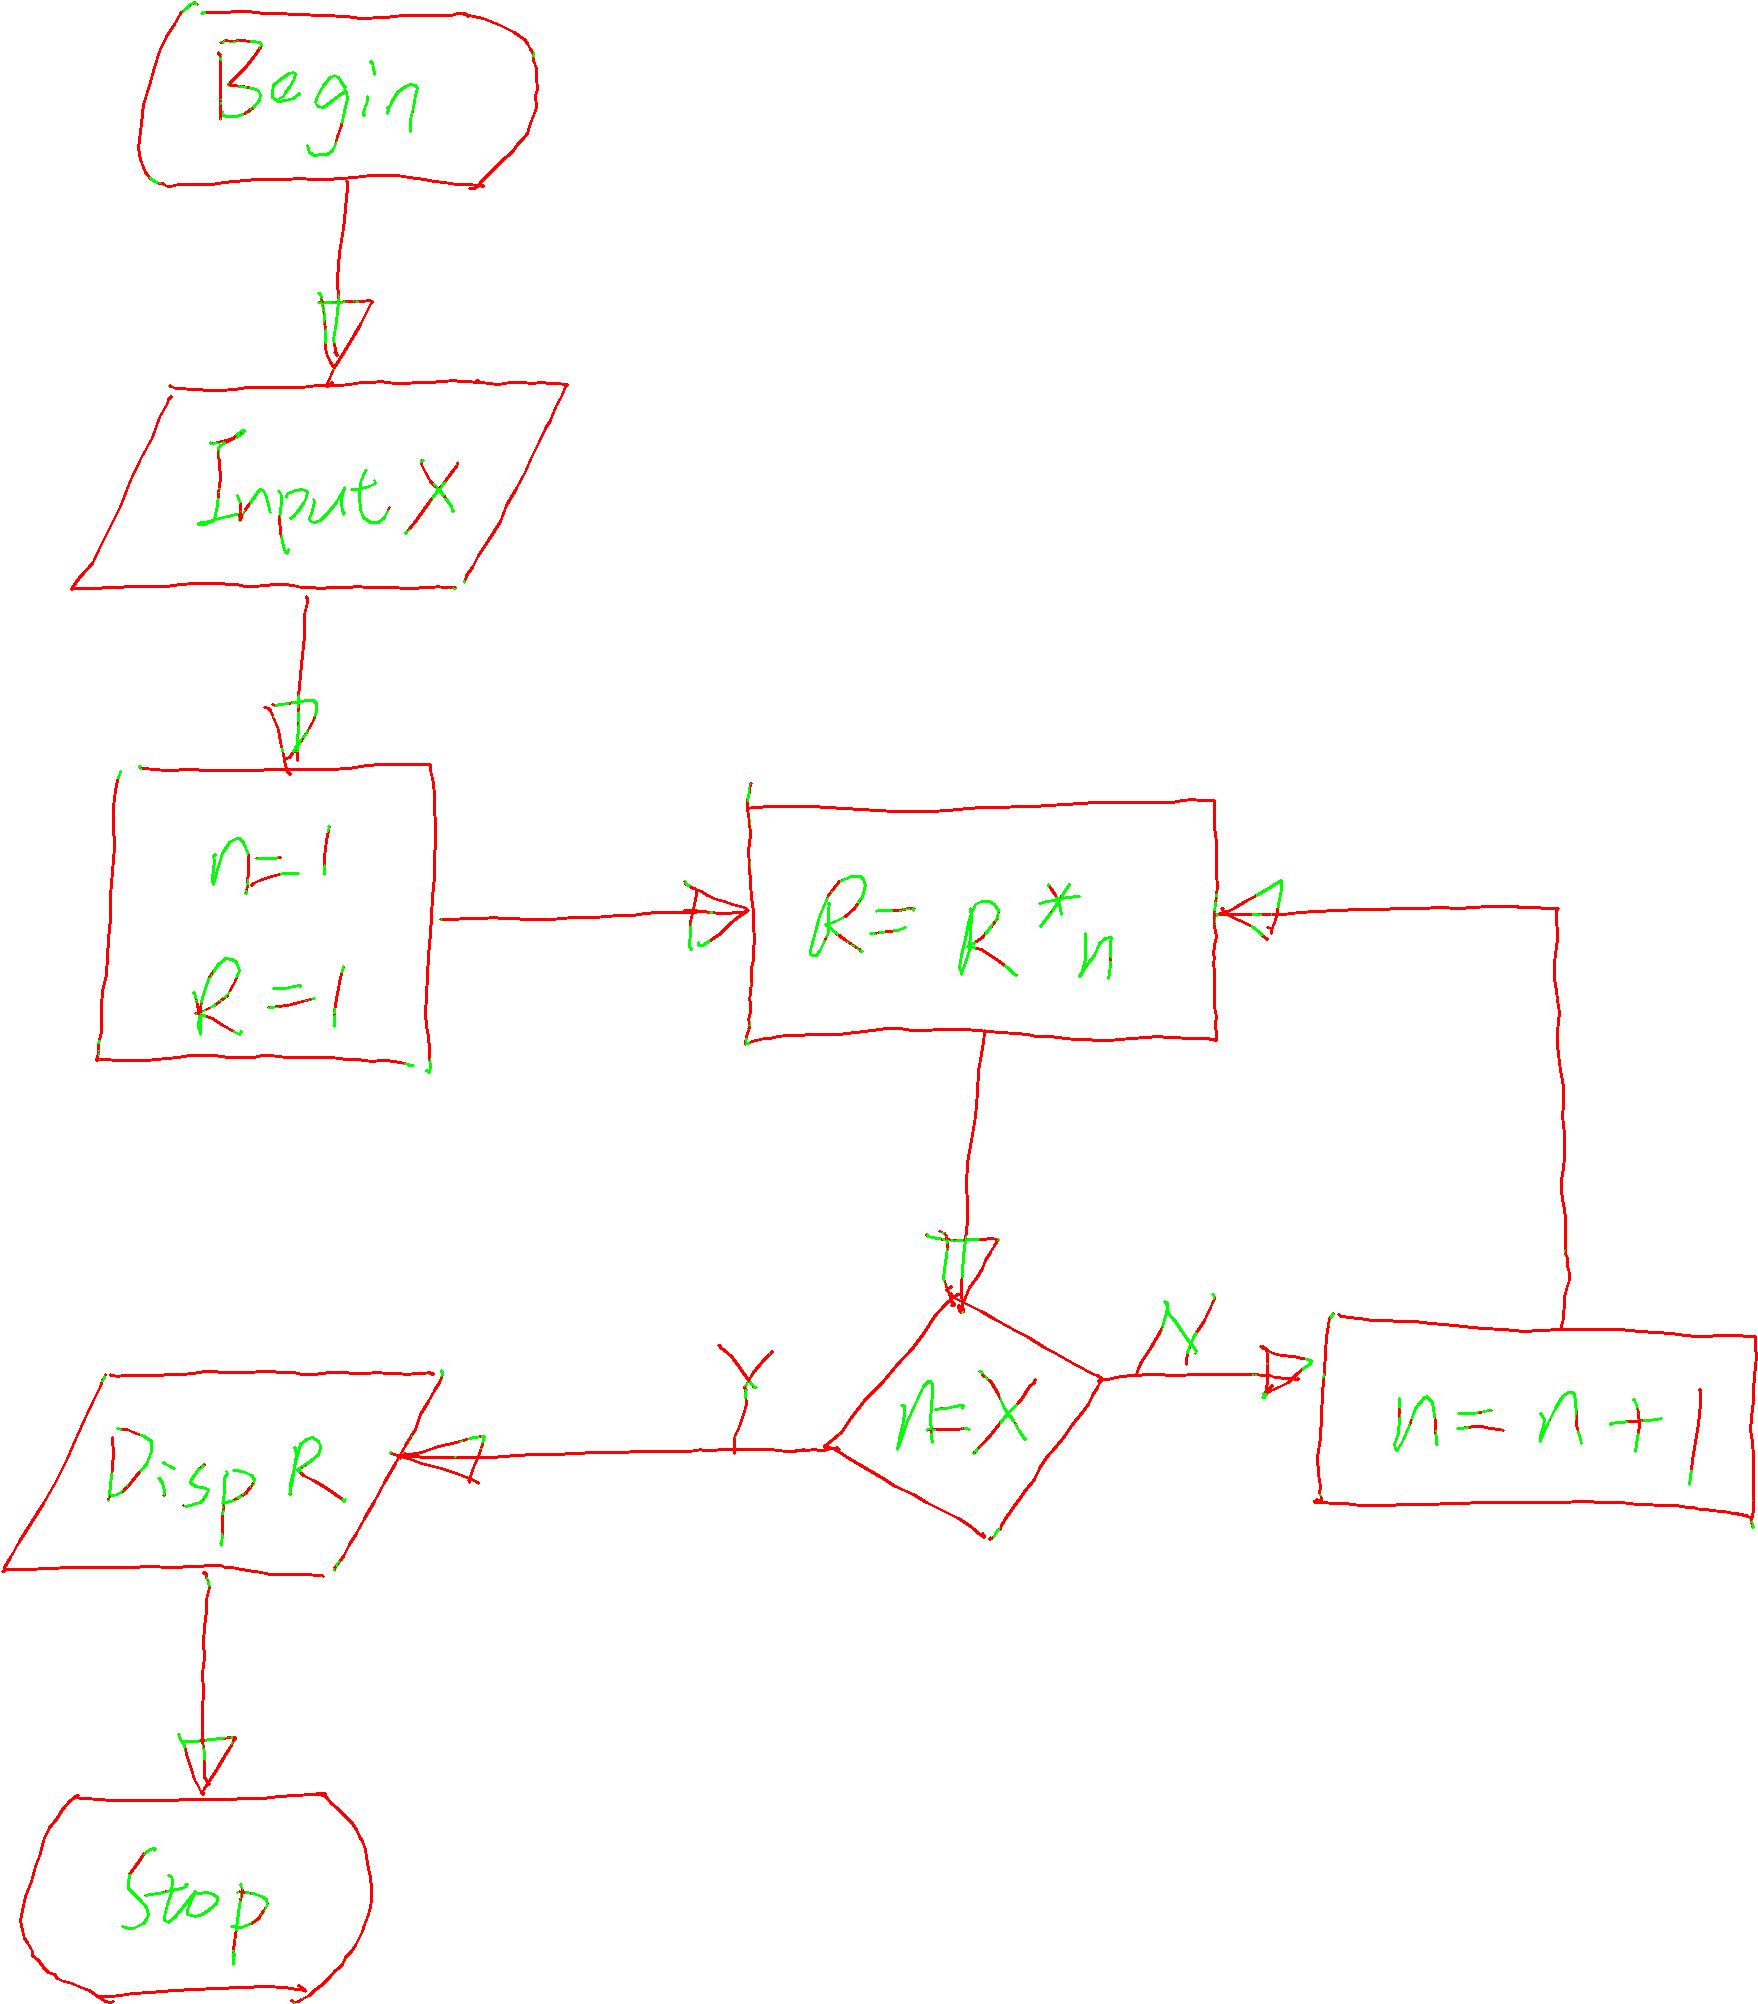 Begin
Input X
n=1
R=1
R=R*n
n=X
N
Y
n=n+1
Disp R
Stop